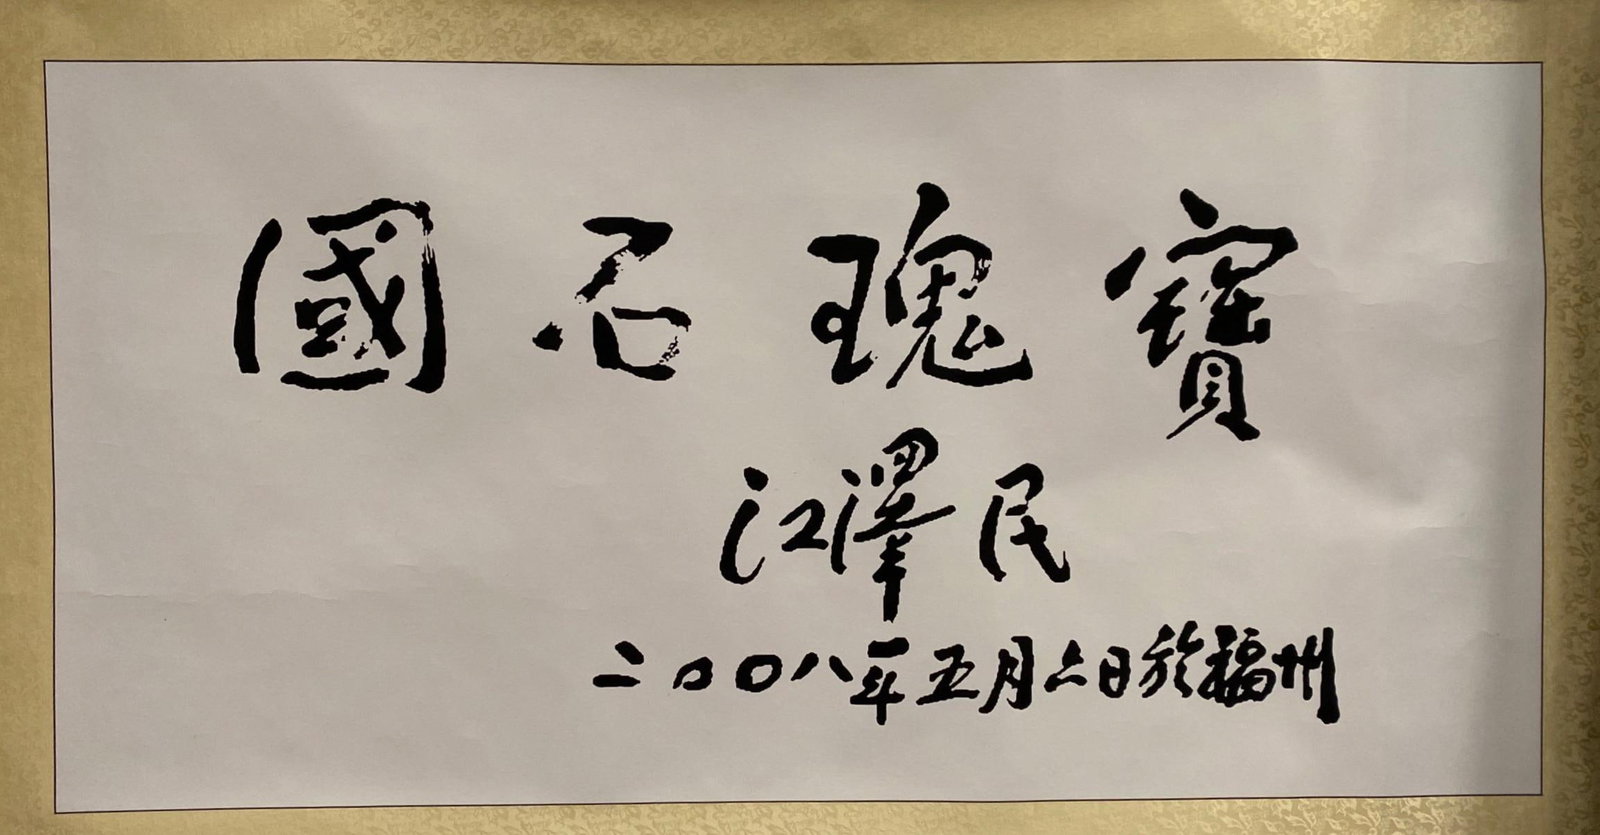 國石瑰寶
江澤民
二〇〇八年五月六日於福州